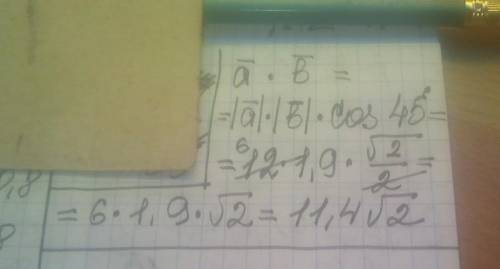 a̅ · b̅ =
= |a̅| · |b̅| · cos 45° =
= ⁶12 · 1,9 · √2/2 =
= 6 · 1,9 · √2 = 11,4√2
8